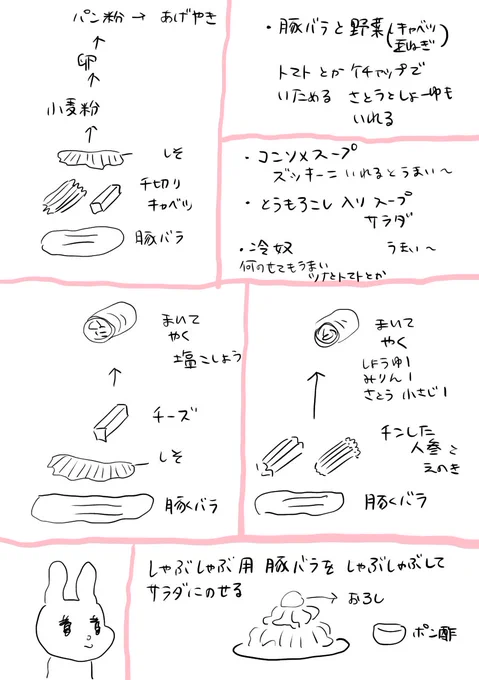 パン粉 → あげやき
卵
小麦粉
しそ
千切り
キャベツ
豚バラ
・豚バラと野菜(キャベツ
玉ねぎ)
トマトとかケチャップで
いためる さとうとしょーゆも
いれる
・コンソメスープ
ズッキーニいれるとうまい〜
・とうもろこし入りスープ
サラダ
うまい〜
・冷奴
何のせてもうまい
ツナとトマトとか
まいて
やく
塩こしょう
チーズ
しそ
豚バラ
まいて
やく
しょうゆ1
みりん1
さとう 小さじ1
チンした
人参と
えのき
豚バラ
しゃぶしゃぶ用 豚バラを しゃぶしゃぶして
サラダにのせる
おろし
ポン酢